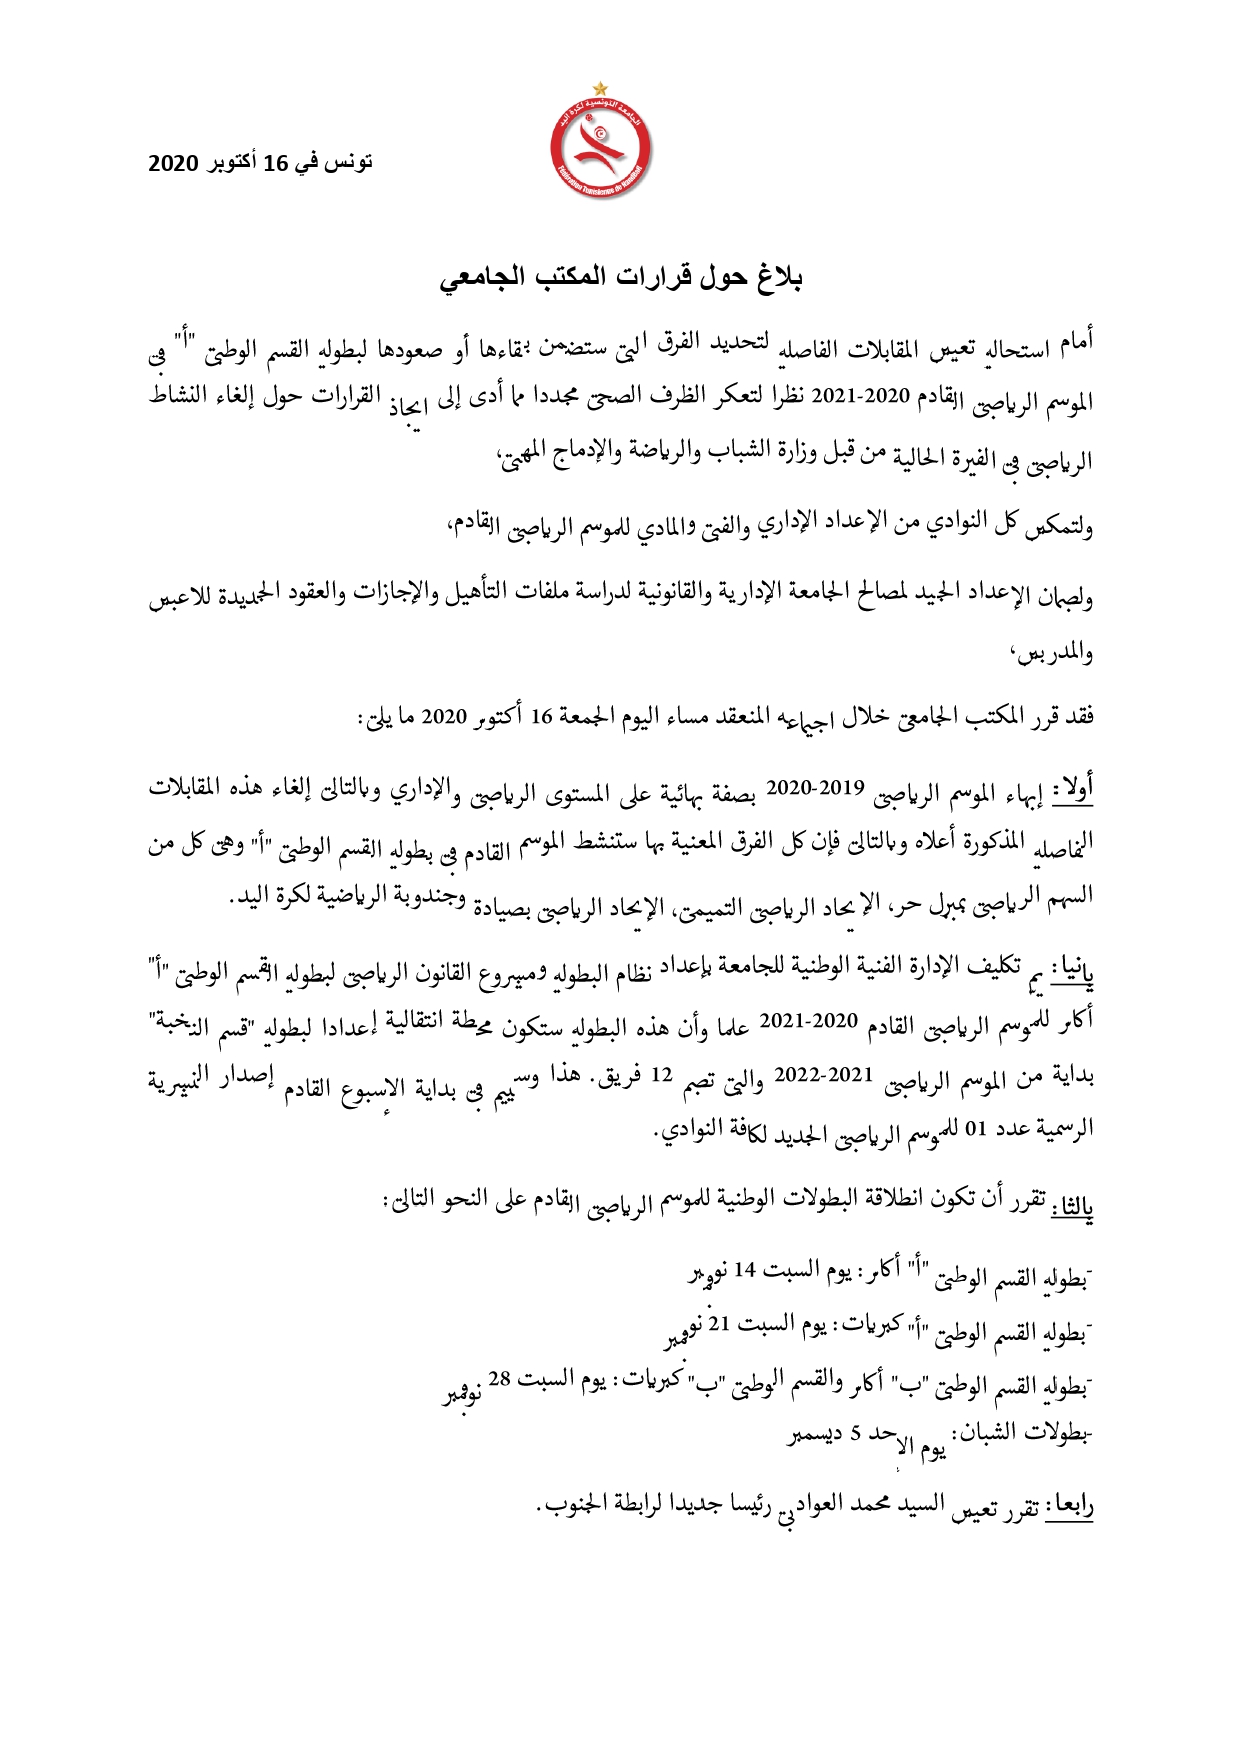 الجامعة التونسية لكرة اليد
Fédération Tunisienne de Handball
تونس في 16 أكتوبر 2020
بلاغ حول قرارات المكتب الجامعي
أمام استحالة تعيين المقابلات الفاصلة لتحديد الفرق التي ستضمن بقاءها أو صعودها لبطولة القسم الوطني "أ" في
الموسم الرياضي القادم 2020-2021 نظرا لتعكر الظرف الصحي مجددا مما أدى إلى اتخاذ القرارات حول إلغاء النشاط
الرياضي في الفترة الحالية من قبل وزارة الشباب والرياضة والإدماج المهني،
ولتمكين كل النوادي من الإعداد الإداري والفني والمادي للموسم الرياضي القادم،
ولضمان الإعداد الجيد لمصالح الجامعة الإدارية والقانونية لدراسة ملفات التأهيل والإجازات والعقود الجديدة للاعبين
والمدربين،
فقد قرر المكتب الجامعي خلال اجتماعه المنعقد مساء اليوم الجمعة 16 أكتوبر 2020 ما يلي:
أولا: إنهاء الموسم الرياضي 2019-2020 بصفة نهائية على المستوى الرياضي والإداري وبالتالي إلغاء هذه المقابلات
الفاصلة المذكورة أعلاه وبالتالي فإن كل الفرق المعنية بها ستنشط الموسم القادم في بطولة القسم الوطني "أ" وهي كل من
السهم الرياضي بمنزل حر، الإتحاد الرياضي التميمي، الإتحاد الرياضي بصيادة وجندوبة الرياضية لكرة اليد.
ثانيا: تم تكليف الإدارة الفنية الوطنية للجامعة بإعداد نظام البطولة ومشروع القانون الرياضي لبطولة القسم الوطني "أ"
أكابر للموسم الرياضي القادم 2020-2021 علما وأن هذه البطولة ستكون محطة انتقالية إعدادا لبطولة "قسم النخبة"
بداية من الموسم الرياضي 2021-2022 والتي تضم 12 فريق. هذا وسيتم في بداية الإسبوع القادم إصدار النشرية
الرسمية عدد 01 للموسم الرياضي الجديد لكافة النوادي.
ثالثا: تقرر أن تكون انطلاقة البطولات الوطنية للموسم الرياضي القادم على النحو التالي:
-بطولة القسم الوطني "أ" أكابر: يوم السبت 14 نوفمبر
-بطولة القسم الوطني "أ" كبريات: يوم السبت 21 نوفمبر
-بطولة القسم الوطني "ب" أكابر والقسم الوطني "ب" كبريات: يوم السبت 28 نوفمبر
-بطولات الشبان: يوم الإحد 5 ديسمبر
رابعا: تقرر تعيين السيد محمد العوادني رئيسا جديدا لرابطة الجنوب.